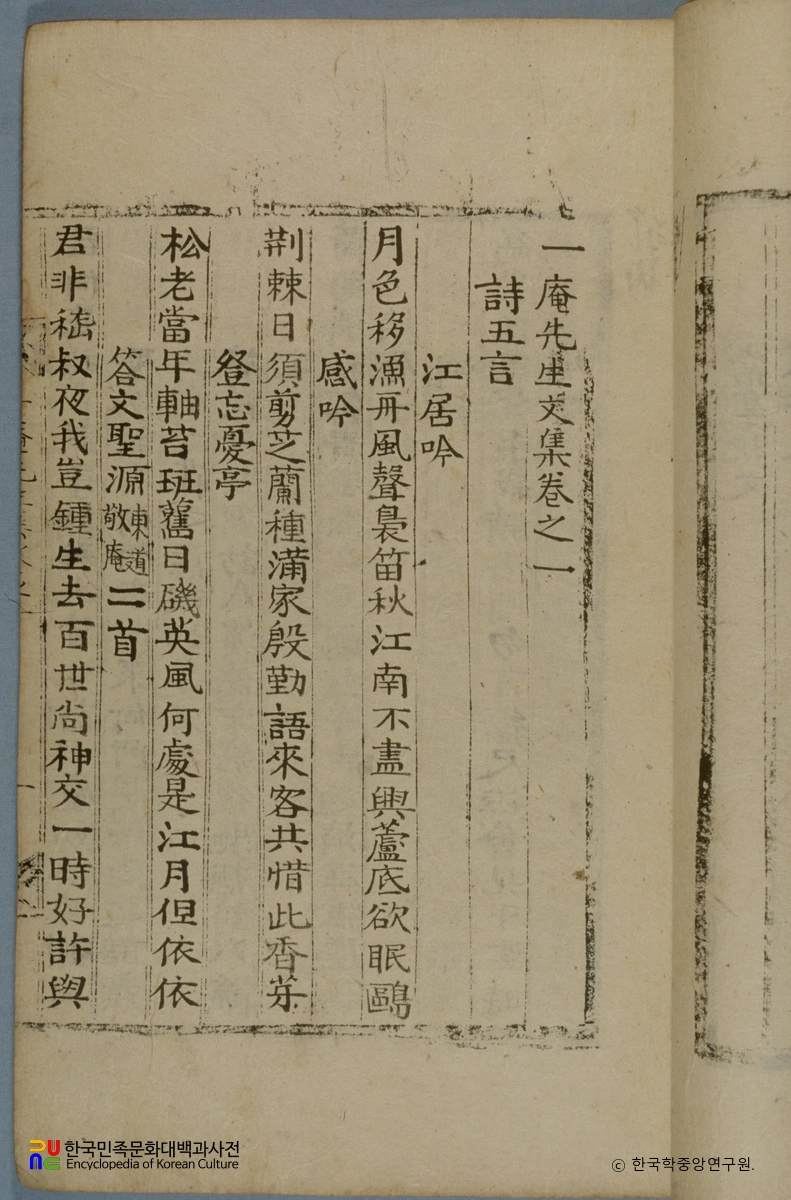 一庵先生文集卷之一
詩五言
江居吟
月色移漁舟風聲裊笛秋江南不盡興蘆底欲眠鷗
感吟
荆棘日須剪芝蘭種滿家殷勤語來客共惜此香芽
登忘憂亭
松老當年軸苔班舊日磯英風何處是江月但依依
答文聖源東道敬庵二首
君非嵇叔夜我豈鍾生去百世尚神交一時好許與
한국민족문화대백과사전
Encyclopedia of Korean Culture
ⓒ 한국학중앙연구원.